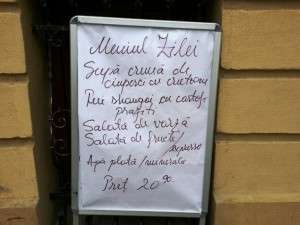 Meniul Zilei
Supă cremă de
ciuperci cu crutoane
Pire șnangei cu cartofi
prăjiți
Salată de varză
Salată de fructe/
espresso
Apa plată/minerală
Preț 20 90